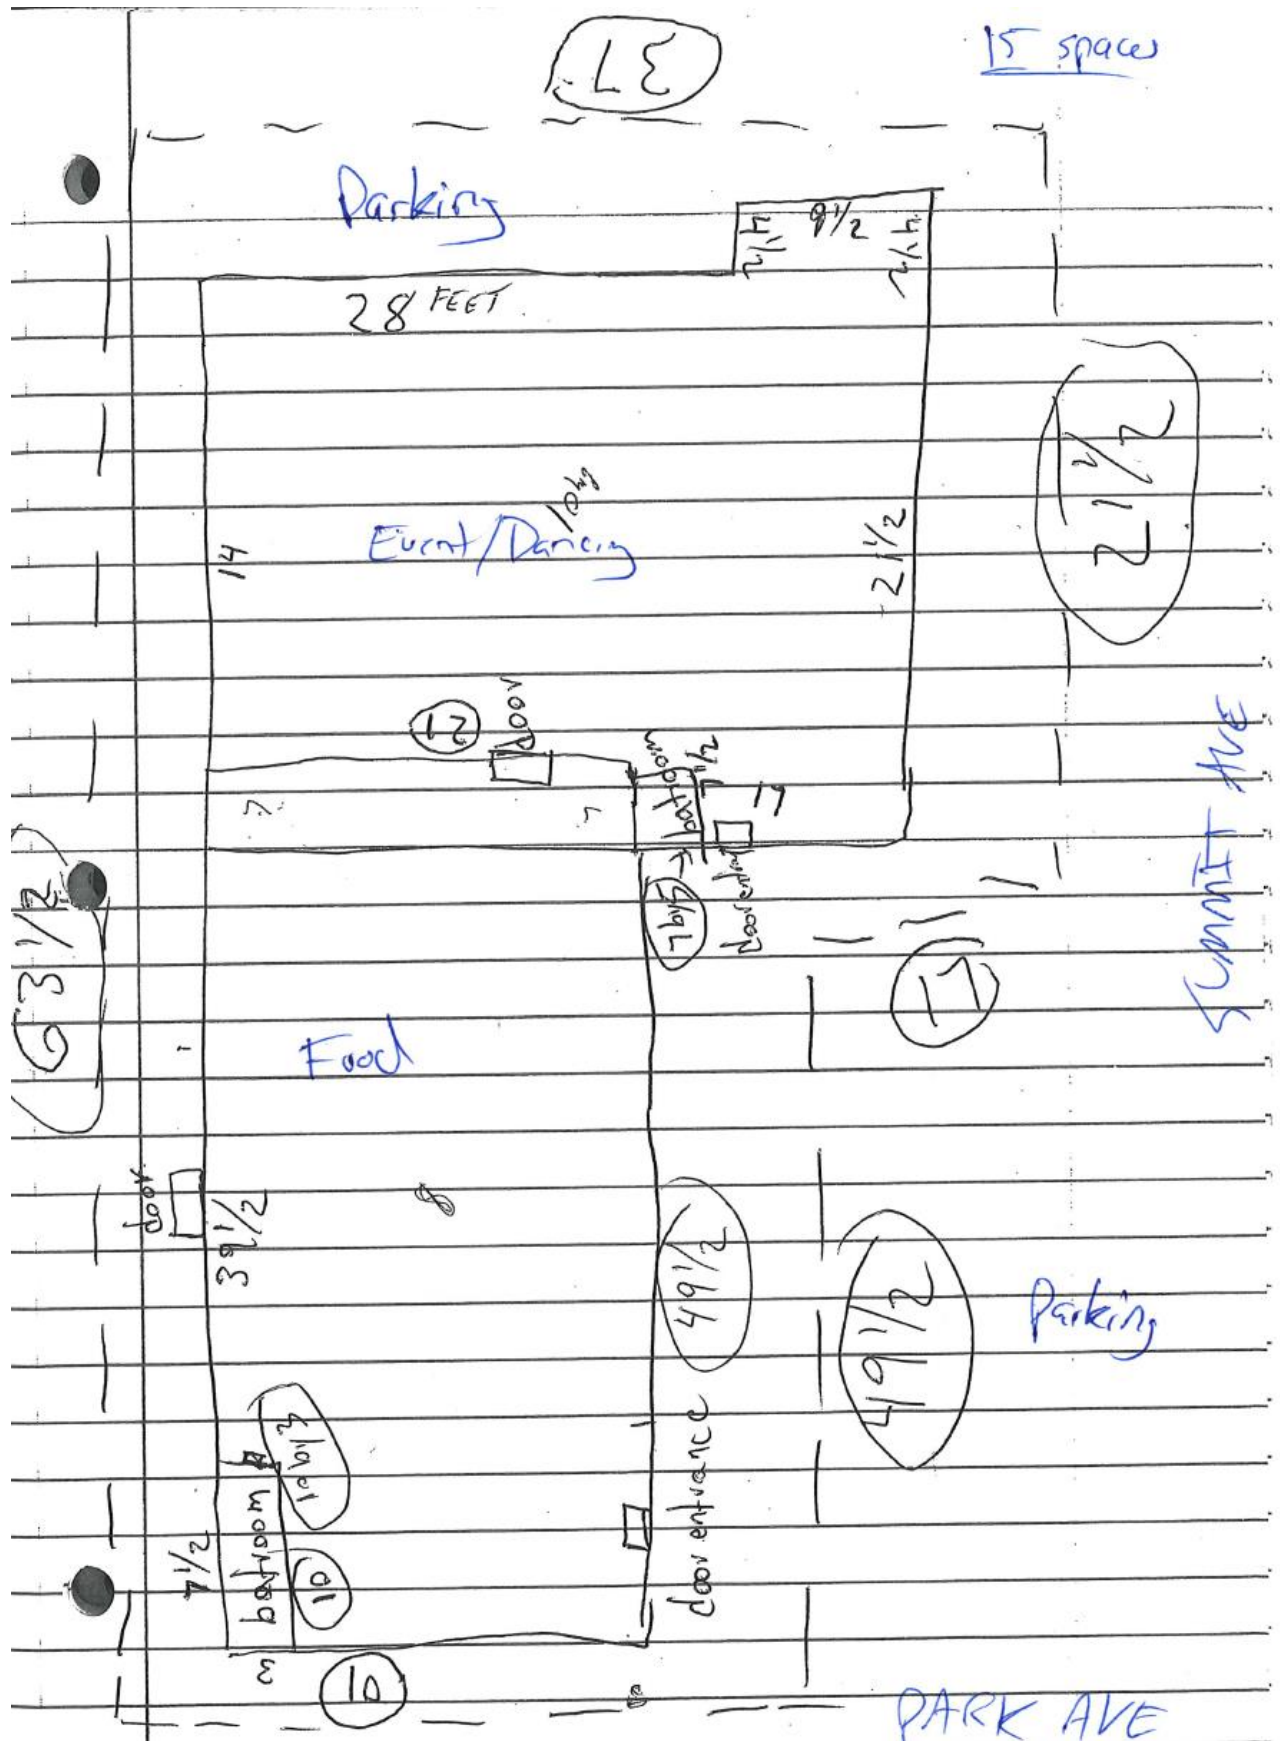 37
15 spaces
Parking
4 1/2
9 1/2
4 1/2
28 FEET
21 1/2
Event/Dancing
14
21 1/2
SUMMIT AVE
12
door
batroom
7 1/2
17
7 by 5
door entry
63 1/2
17
Food
door
39 1/2
8
49 1/2
49 1/2
Parking
10 by 3
batroom
7 1/2
10
door entrance
3
10
PARK AVE